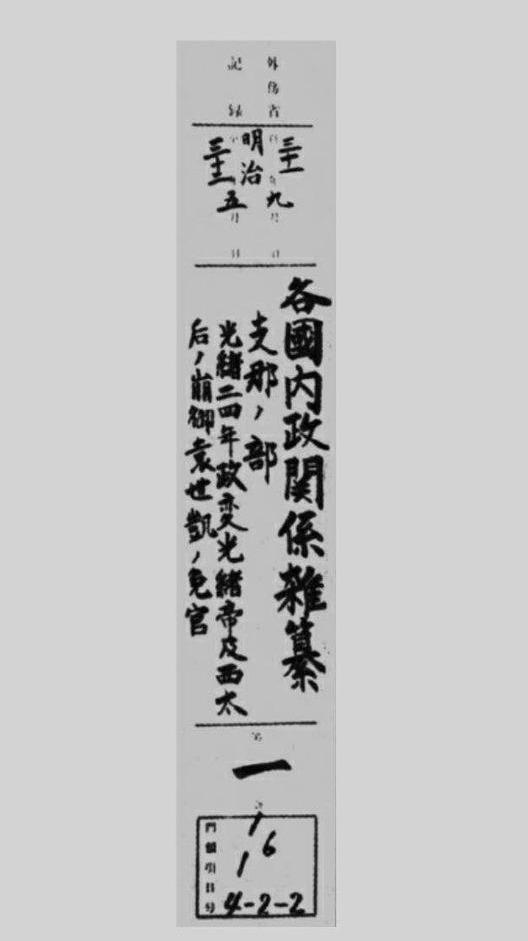 外務省
記録
明治
三十一 九
三十二 五月
各國内政関係雑纂
支那ノ部
光緒二四年政変光緒帝及西太
后ノ崩御袁世凱ノ免官
第
一
門類項目号
1
6
1
4-2-2